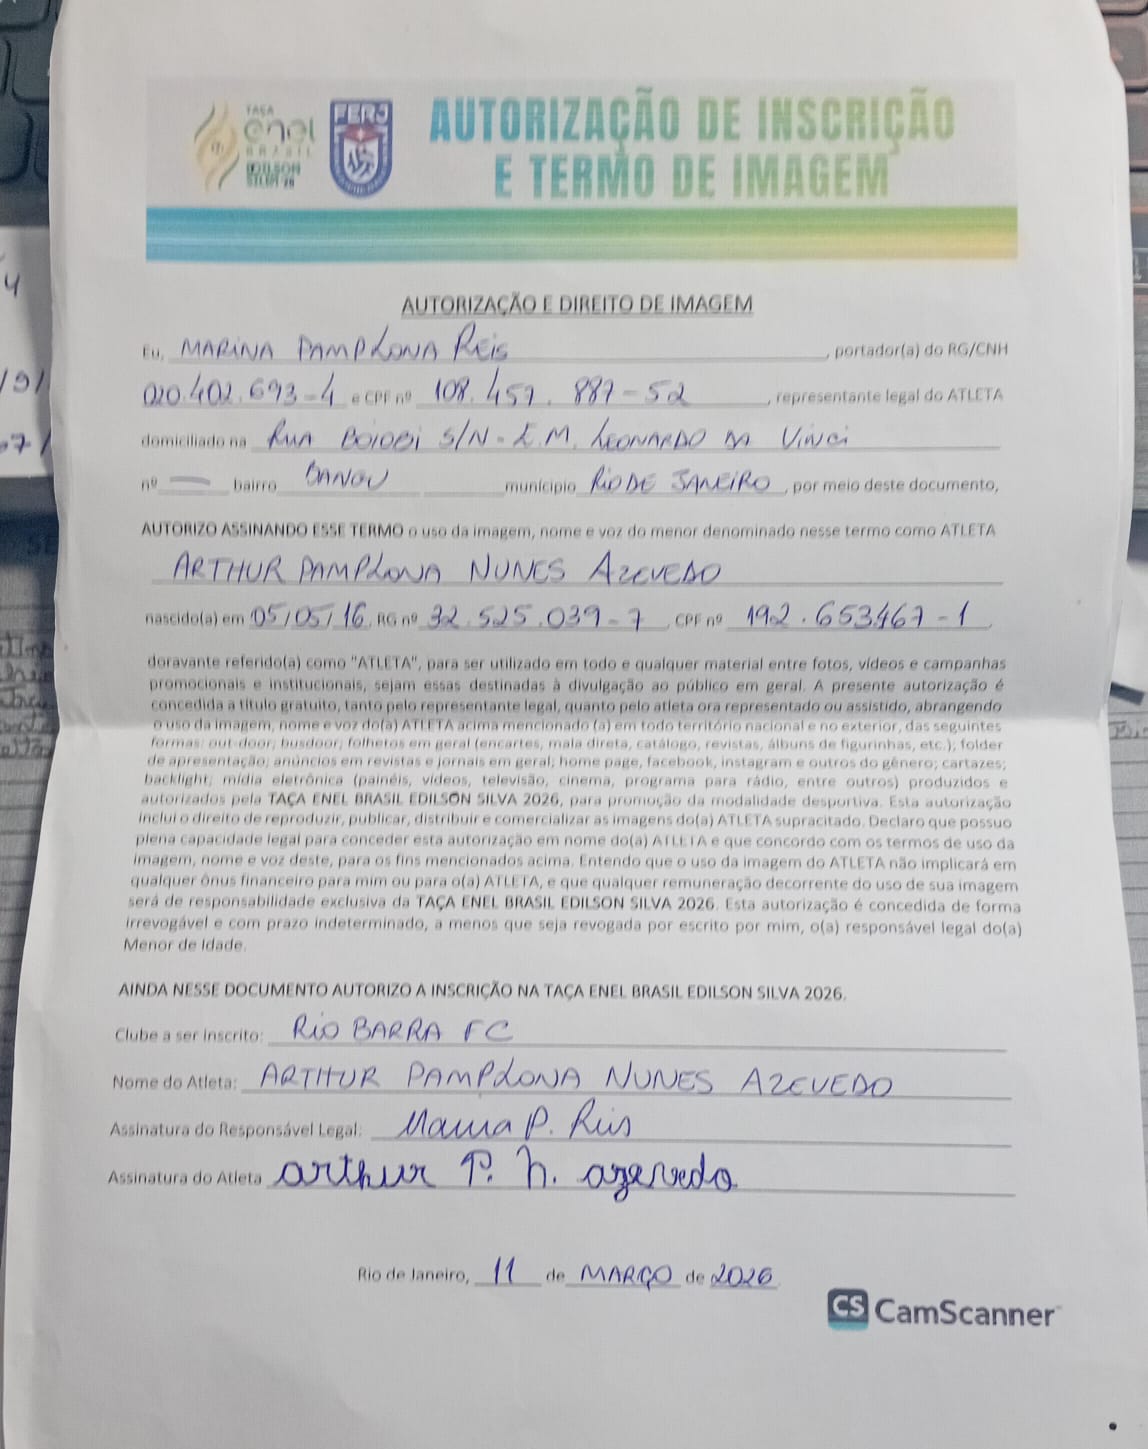 TAÇA
enel
BRASIL
EDILSON
SILVA 26
FERJ
AUTORIZAÇÃO DE INSCRIÇÃO
E TERMO DE IMAGEM
AUTORIZAÇÃO E DIREITO DE IMAGEM
Eu, MARINA PAMPLONA REIS, portador(a) do RG/CNH
020.402.693-4 e CPF nº 108.457.887-52, representante legal do ATLETA
domiciliado na RUA BOIOBI S/N - E.M. LEONARDO DA VINCI
nº — bairro BANGU município RIO DE JANEIRO, por meio deste documento,
AUTORIZO ASSINANDO ESSE TERMO o uso da imagem, nome e voz do menor denominado nesse termo como ATLETA
ARTHUR PAMPLONA NUNES AZEVEDO
nascido(a) em 05/05/16, RG nº 32.525.039-7, CPF nº 192.653467-1
doravante referido(a) como "ATLETA", para ser utilizado em todo e qualquer material entre fotos, vídeos e campanhas
promocionais e institucionais, sejam essas destinadas à divulgação ao público em geral. A presente autorização é
concedida a título gratuito, tanto pelo representante legal, quanto pelo atleta ora representado ou assistido, abrangendo
o uso da imagem, nome e voz do(a) ATLETA acima mencionado (a) em todo território nacional e no exterior, das seguintes
formas: out-door; busdoor; folhetos em geral (encartes, mala direta, catálogo, revistas, álbuns de figurinhas, etc.); folder
de apresentação; anúncios em revistas e jornais em geral; home page, facebook, instagram e outros do gênero; cartazes;
backlight; mídia eletrônica (painéis, vídeos, televisão, cinema, programa para rádio, entre outros) produzidos e
autorizados pela TAÇA ENEL BRASIL EDILSON SILVA 2026, para promoção da modalidade desportiva. Esta autorização
inclui o direito de reproduzir, publicar, distribuir e comercializar as imagens do(a) ATLETA supracitado. Declaro que possuo
plena capacidade legal para conceder esta autorização em nome do(a) ATLETA e que concordo com os termos de uso da
imagem, nome e voz deste, para os fins mencionados acima. Entendo que o uso da imagem do ATLETA não implicará em
qualquer ônus financeiro para mim ou para o(a) ATLETA, e que qualquer remuneração decorrente do uso de sua imagem
será de responsabilidade exclusiva da TAÇA ENEL BRASIL EDILSON SILVA 2026. Esta autorização é concedida de forma
irrevogável e com prazo indeterminado, a menos que seja revogada por escrito por mim, o(a) responsável legal do(a)
Menor de Idade.
AINDA NESSE DOCUMENTO AUTORIZO A INSCRIÇÃO NA TAÇA ENEL BRASIL EDILSON SILVA 2026.
Clube a ser inscrito: RIO BARRA FC
Nome do Atleta: ARTHUR PAMPLONA NUNES AZEVEDO
Assinatura do Responsável Legal: Marina P. Reis
Assinatura do Atleta arthur P. N. azevedo
Rio de Janeiro, 11 de MARÇO de 2026
CS CamScanner